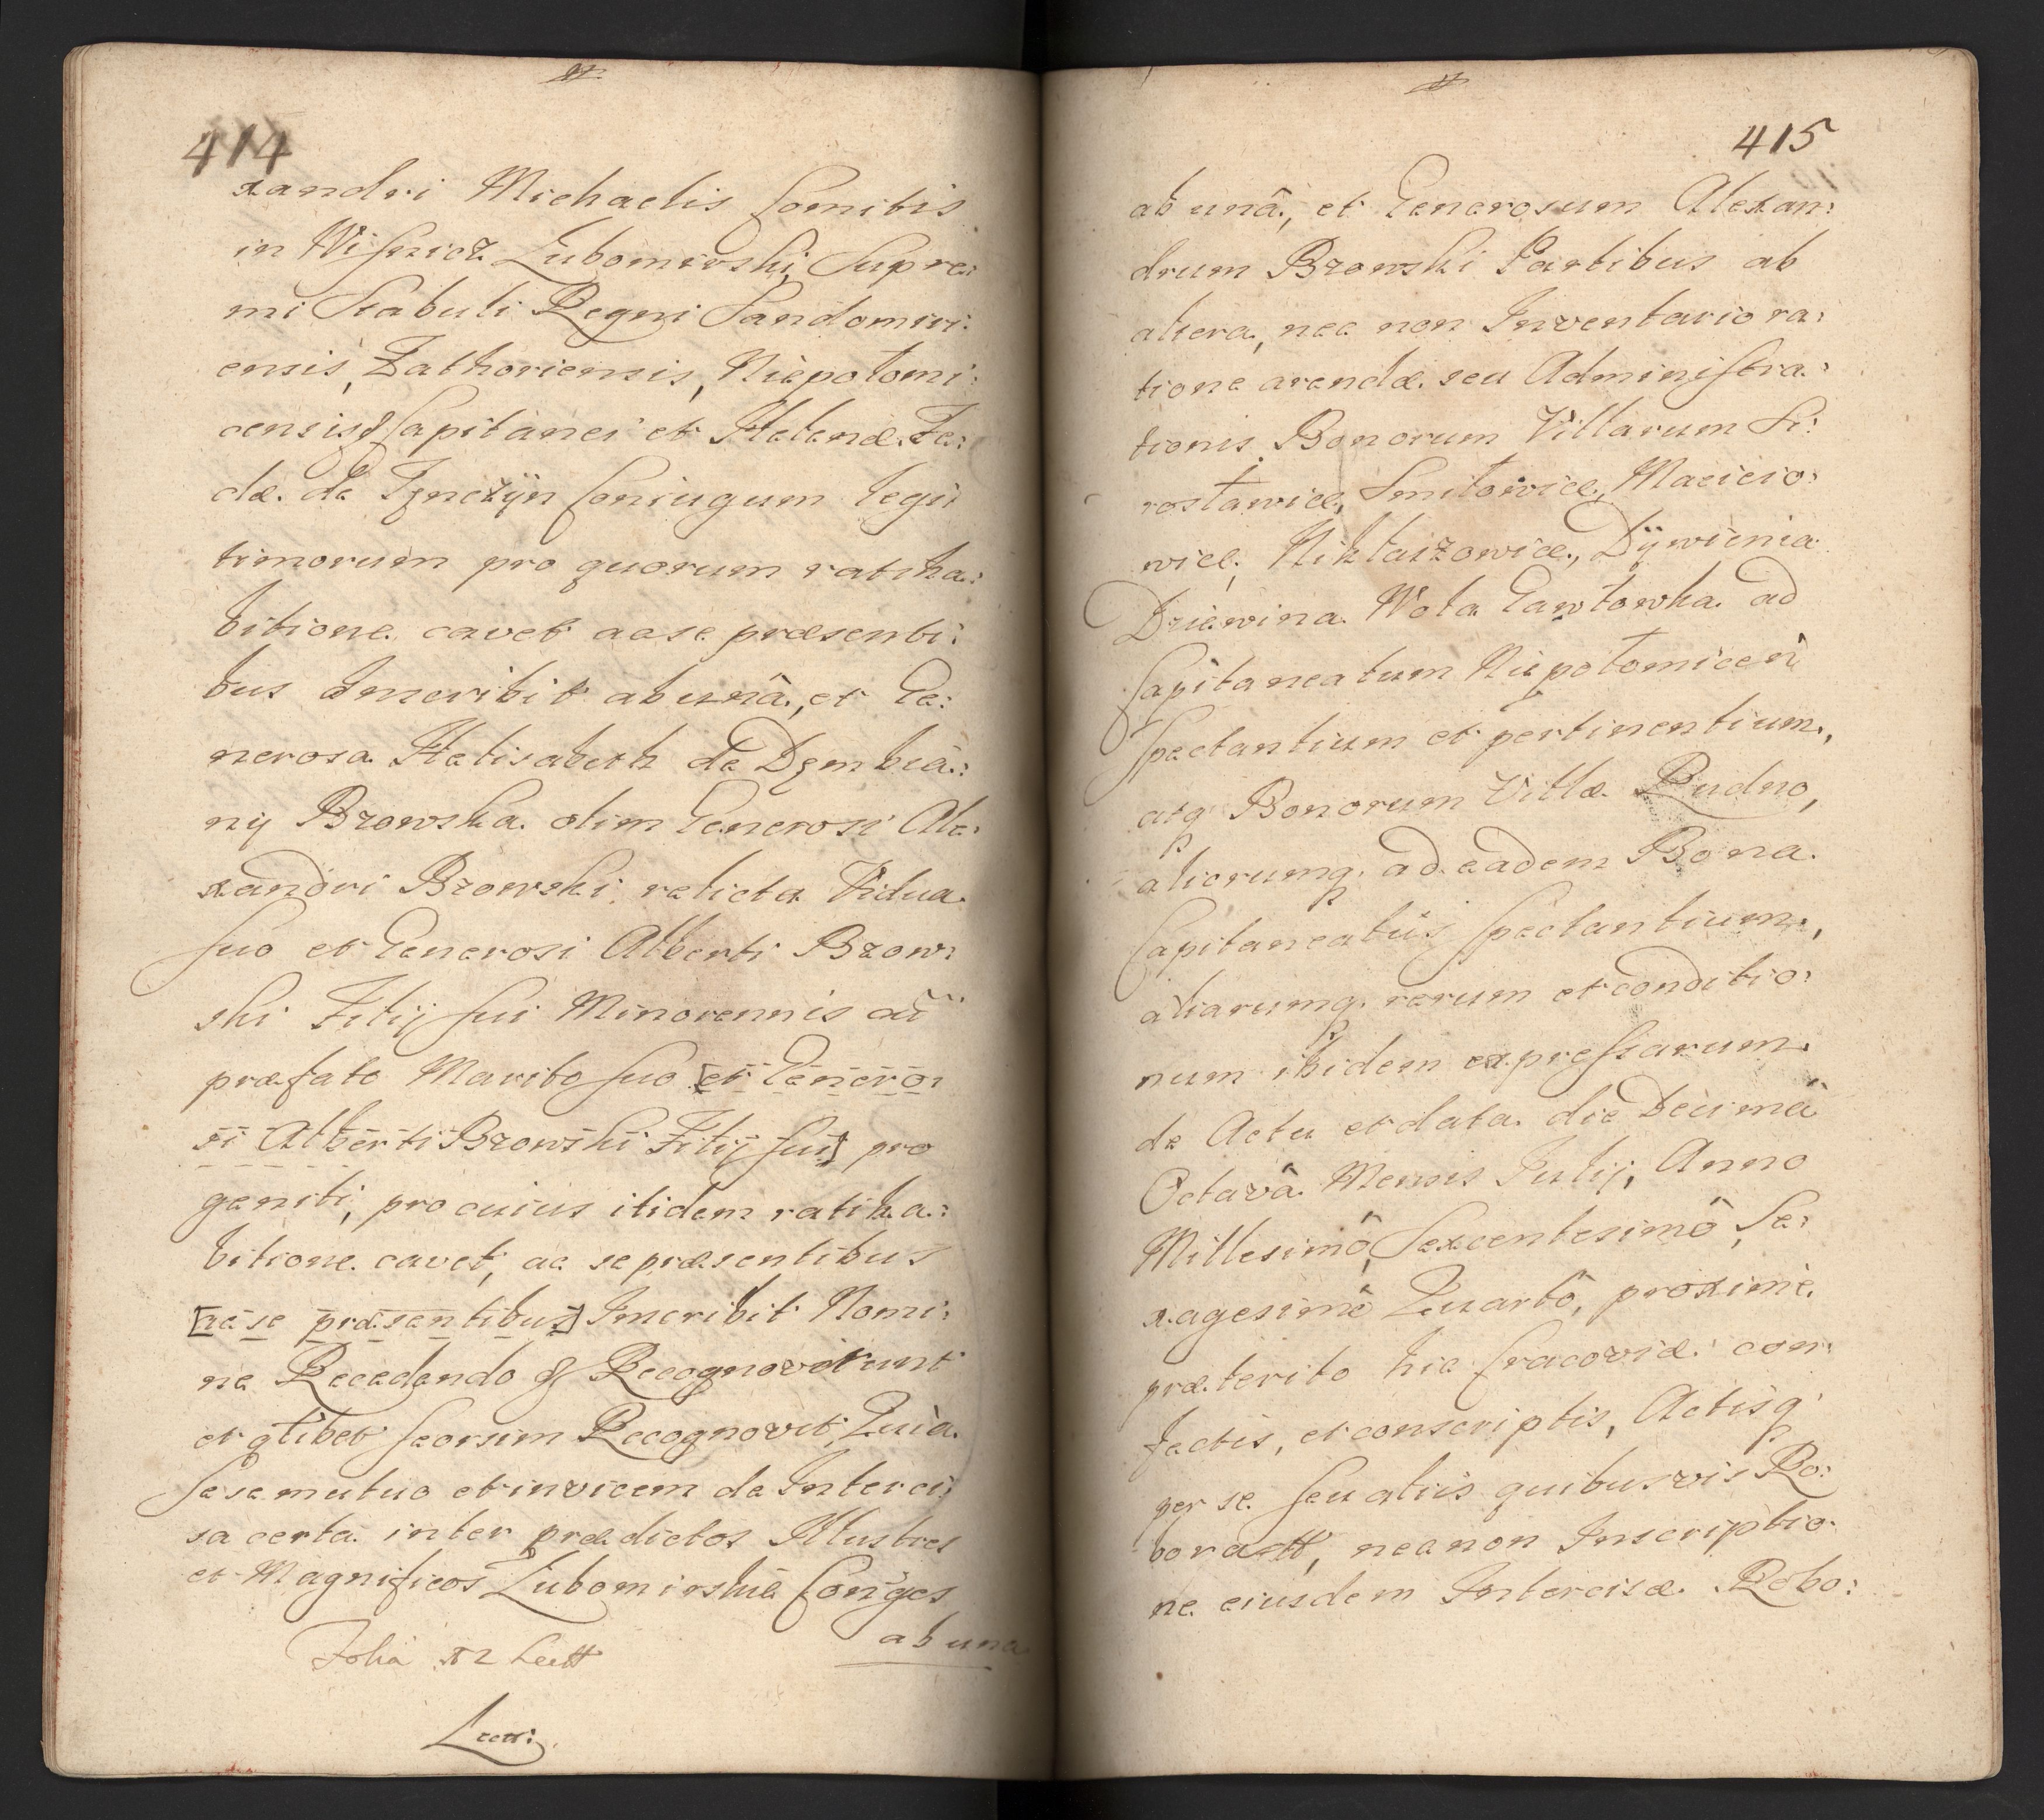 414
xandri Michaelis Comitis
in Wisnicz Lubomirski, Supre:
mi Stabuli Regni Sandomiri:
ensis, Zathoriensis, Niepołomi:
censisq Capitanei et Helenæ Te:
clæ de Tęnczÿn Coniugum legit
timorum pro quorum ratiha:
bitione cavet ac se præsenti:
bus Inscribit ab unâ, et Ge:
nerosa Helisabeth de Dęmbia:
ny Bzowska olim Generosi Ale:
xandri Bzowski relicta Vidua
suo et Generosi Alberti Bzow:
ski Filij sui Minorennis cũ
præfato Marito suo [et Genero:
si Alberti Bzowski Filij sui] pro
geniti, pro cuius itidem ratiha:
bitione cavet, ac se præsentibus
[ac se præsentibus] Inscribit Nomi:
ne Recedendo & Recognoverunt
et qlibet seorsim Recognovit, Quia
sese mutuo et invicem de Interci:
sa certa inter prædictos Illustres
et Magnificos Lubomirskie Conges
ab una
Folia 12 Lectt
Lectt:
415
ab unâ, et Generosum Alexan:
drum Bzowski Partibus ab
altera, nec non Inventario ra:
tione arendæ seu Administra:
tionis Bonorum Villarum Si:
rosławice, Smiłowice, Macierio:
wice, Niklaszowice, Dÿwinia
Drwina Wola Gawłowka ad
Capitaneatum Niepołomiceñ
spectantium et pertinentium,
atq Bonorum Villæ Rudno,
aliorumq. ad eadem Bona
Capitaneatûs spectantium,
aliarumq. rerum et conditio:
num ibidem expressarum
de Actu et data die Decimâ
Octavâ Mensis Julij, Anno
Millesimô Sexcentesimô, Se:
xagesimô Quartô, proximè
præterito hic Cracoviæ con:
fectis, et conscriptis, Actisq
per se seu aliis quibusvis Ro:
boratt, nec non Inscriptio
ne eiusdem Intercisæ Robo: